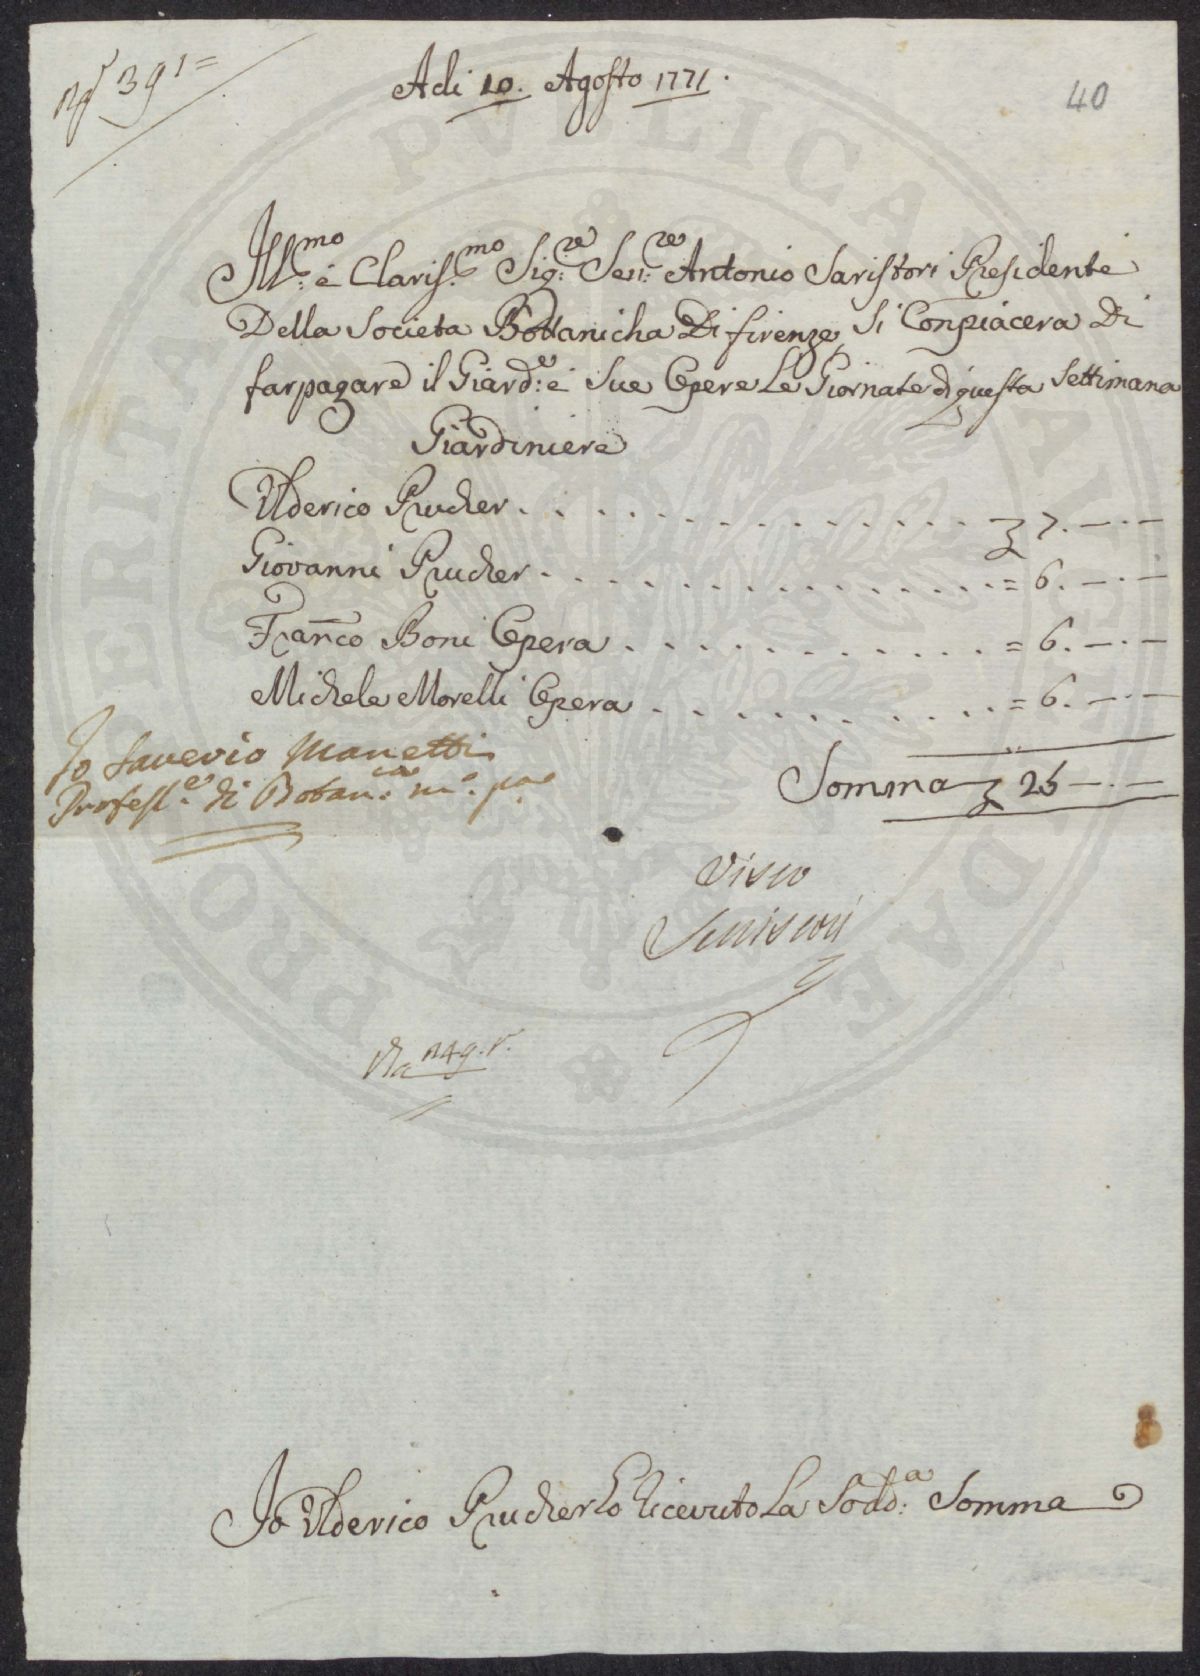 39 1=
Adi 10. Agosto 1771.
40
Ill:mo è Claris:mo Sig:re Sen:re Antonio Saristori Presidente
Della Societa Bottanicha Di firenze, Si Conpiacera Di
far pagare il Giard:e è Sue Opere Le Giornate di questa Settimana
Giardiniere
Ulderico Prucher . . . . . . . . . . . . . . £ 7. — . —
Giovanni Prucher . . . . . . . . . . . . . . = 6. — . —
Fran̄co Boni Opera . . . . . . . . . . . . = 6. — . —
Michele Morelli Opera . . . . . . . . . . . = 6. — . —
Io Saverio Manetti
Profess:e di Botan:ca m:o pa
Somma £ 25 — . —
Visto
Seristori
Io Ulderico Prucher ho ricevuto La Sodd:a Somma
PRO PERITATI PVBLICAE AVGENDAE